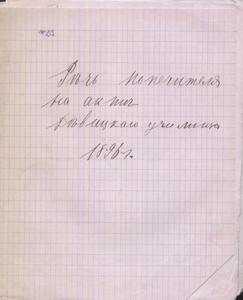 Рѣчь попечителя
на актѣ
Ловацкаго училища
1896 г.